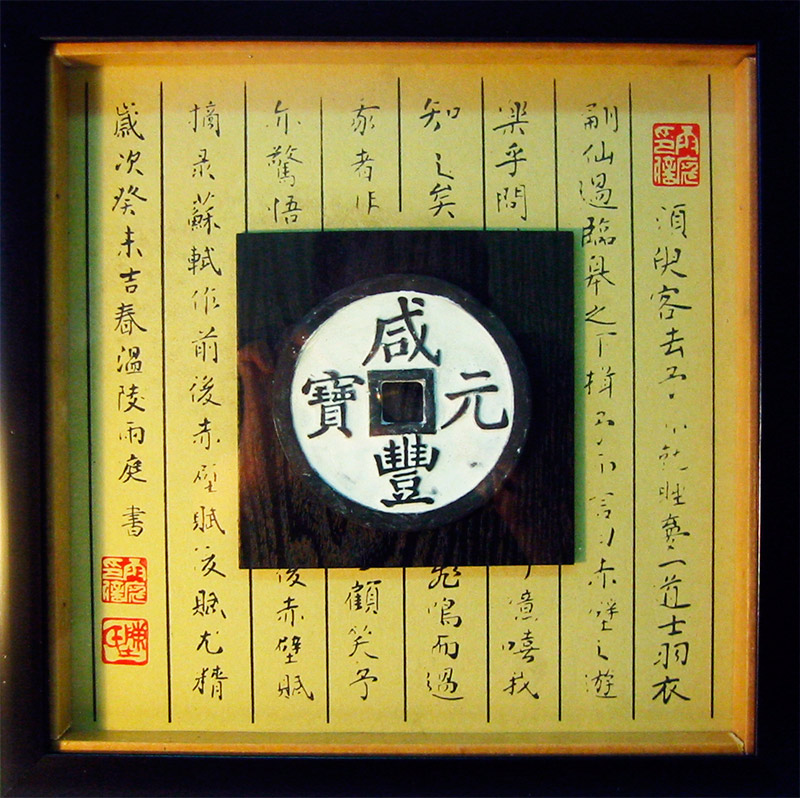 雨庭印信
須臾客去予亦就睡夢一道士羽衣
翩仙過臨皋之下揖予而言曰赤壁之遊
樂乎問
憶嘻我
知之矣
飛鳴而過
我者非
顧笑予
亦驚悟
後赤壁賦
摘录蘇軾作前後赤壁賦後賦尤精
歲次癸未吉春溫陵雨庭書
雨庭印信
咸豐元寶